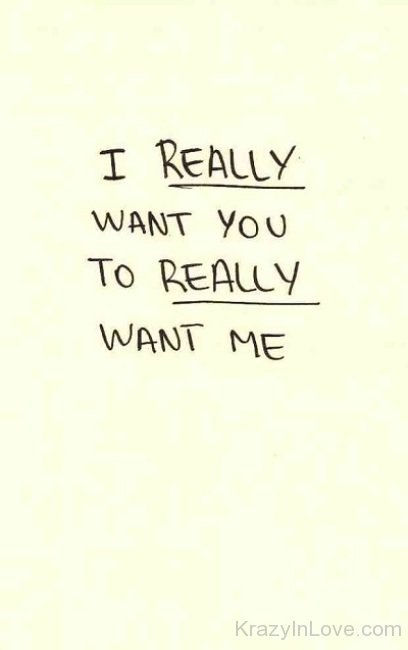 I REALLY
WANT YOU
TO REALLY
WANT ME
KrazyInLove.com